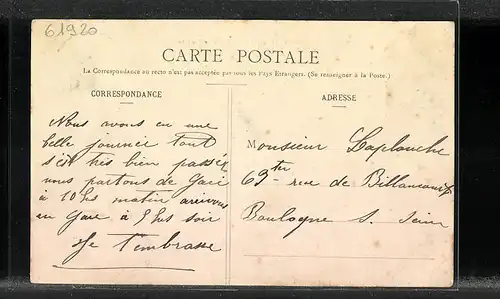 61920
CARTE POSTALE
La Correspondance au recto n'est pas acceptée par tous les Pays Etrangers. (Se renseigner à la Poste.)
CORRESPONDANCE
Nous avons eu une
belle journée tout
s'est très bien passé
nous partons de Gare
à 10 hs matin arrivons
en Gare à 5 hs soir
Je t'embrasse
ADRESSE
Monsieur Laplanche
69 ter rue de Billancourt
Boulogne s. Seine